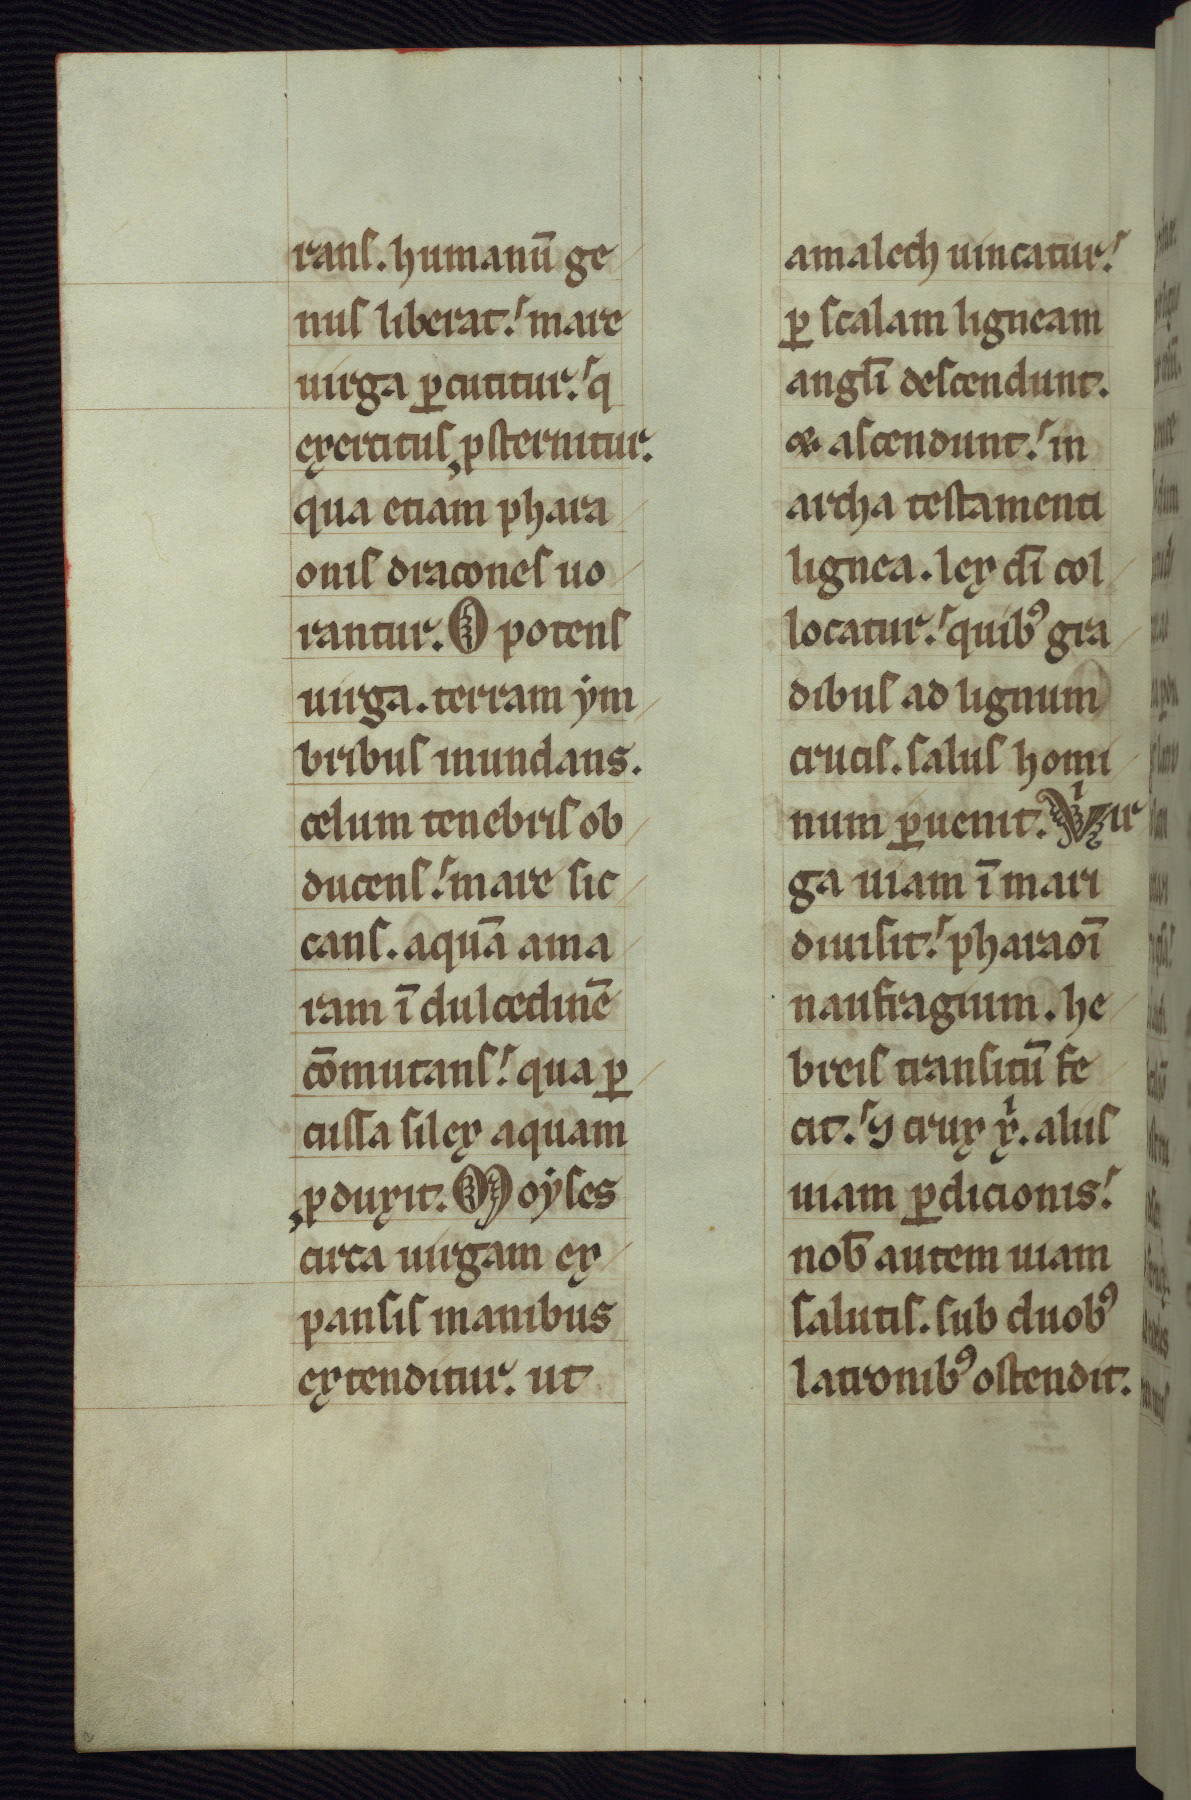 ranſ. humanū ge
nuſ liberat.ſ mare
uirga ꝑcutitur.ſ q
exercituſ ꝓſternitur.
qua etiam phara
oniſ draconeſ uo
rantur. O potenſ
uirga. terram ẏm
bribuſ inundans.
celum tenebriſ ob
ducenſ.ſ mare ſic
canſ. aquā ama
ram ī dulcedinē
cōmutanſ.ſ qua ꝑ
cuſſa ſilex aquam
ꝓduxit. Moẏſes
circa uirgam ex
panſiſ manibus
extenditur. ut
amalech uincatur.ſ
ꝑ ſcalam ligneam
angl̄i deſcendunt.
& aſcendunt.ſ in
archa teſtamenti
lignea. lex dī col
locatur.ſ quibꝰ gra
dibuſ ad lignum
cruciſ. ſaluſ homi
num ꝑuenit. Vir
ga uiam ī mari
diuiſit.ſ pharaoī
naufragium. he
breiſ tranſitū fe
cit.ſ ꝯ crux xⁱ. aliiſ
uiam ꝑdicionis.ſ
nob̄ autem uiam
ſalutiſ. ſub duobꝰ
latronibꝰ oſtendit.